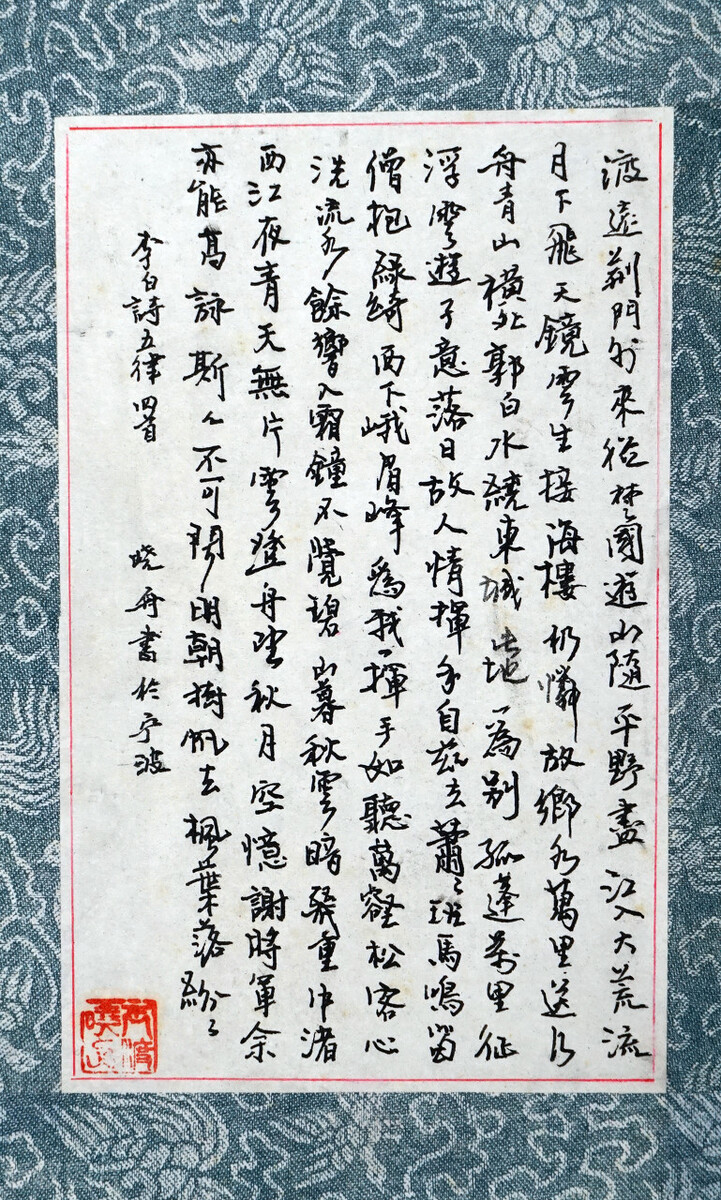 渡遠荊門外來從楚國遊山隨平野盡江入大荒流
月下飛天鏡雲生接海樓仍憐故鄉水萬里送行
舟青山橫北郭白水繞東城此地一為別孤蓬萬里征
浮雲遊子意落日故人情揮手自茲去蕭々班馬鳴蜀
僧抱綠綺西下峨眉峰為我一揮手如聽萬壑松客心
洗流水餘響入霜鐘不覺碧山暮秋雲暗幾重牛渚
西江夜青天無片雲登舟望秋月空憶謝將軍余
亦能高詠斯人不可聞明朝掛帆去楓葉落紛々
李白詩五律四首 曉舟書於宁波